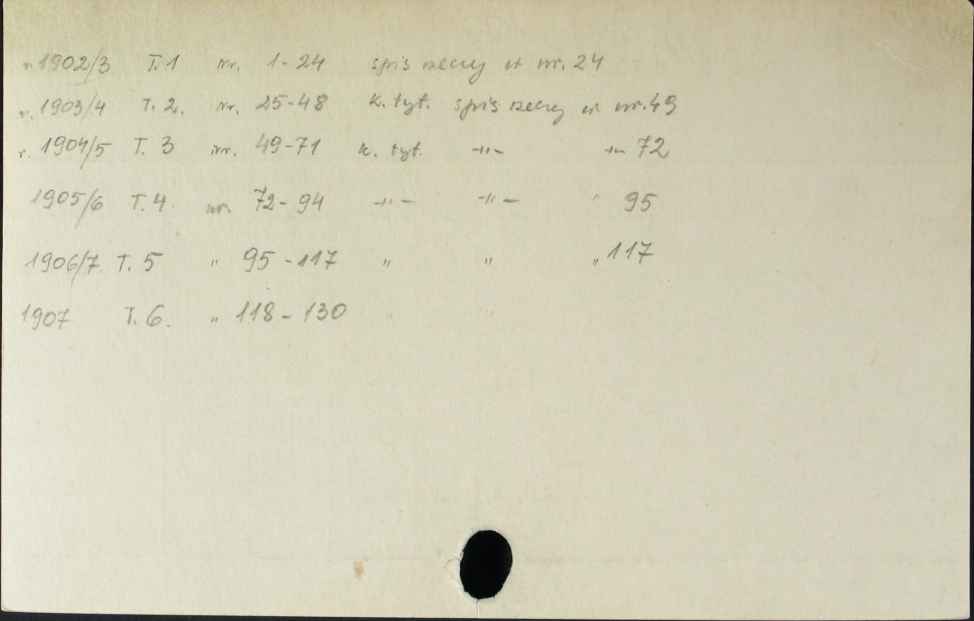 r. 1902/3 T.1 nr. 1-24 spis rzeczy w nr. 24
r. 1903/4 T. 2. nr. 25-48 k. tyt. spis rzeczy w nr. 49
r. 1904/5 T. 3 nr. 49-71 k. tyt. -"- -"- 72
1905/6 T. 4. nr. 72-94 -"- -"- " 95
1906/7 T. 5 " 95-117 " " " 117
1907 T. 6. " 118-130 " "